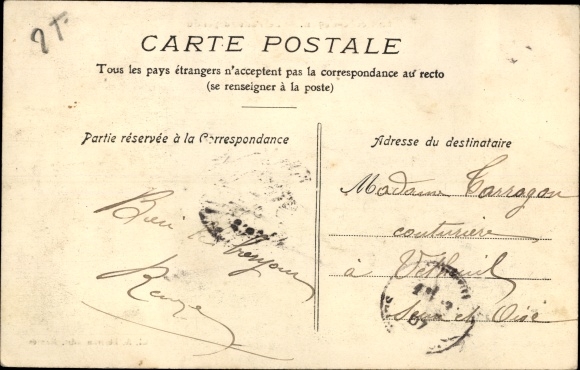 2f.
CARTE POSTALE
Tous les pays étrangers n'acceptent pas la correspondance au recto
(se renseigner à la poste)
Partie réservée à la Correspondance
Adresse du destinataire
Bien
Madame Tarragon
couturière
à Vétheuil
Seine et Oise
07